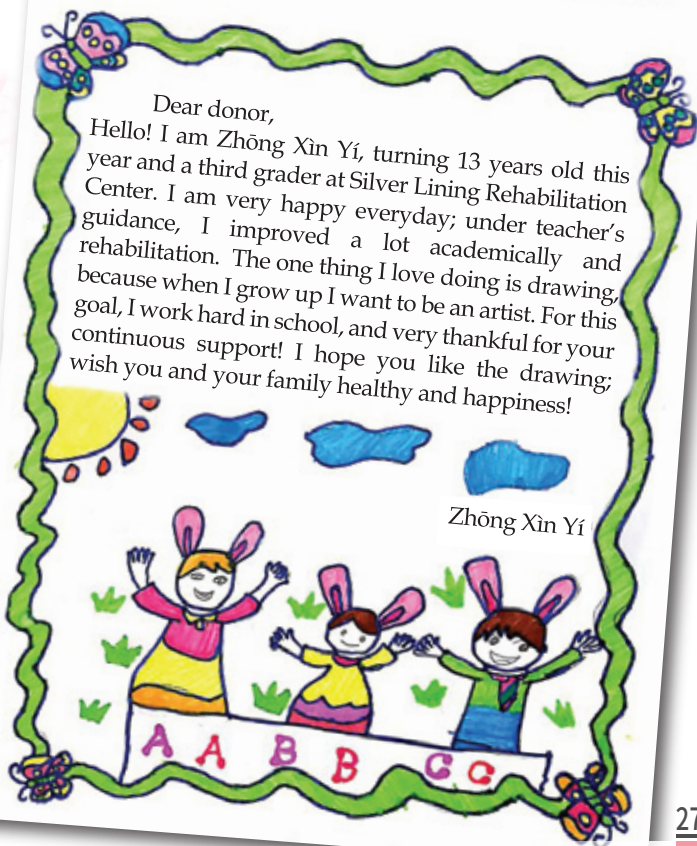 Dear donor,
Hello! I am Zhōng Xìn Yí, turning 13 years old this
year and a third grader at Silver Lining Rehabilitation
Center. I am very happy everyday; under teacher's
guidance, I improved a lot academically and
rehabilitation. The one thing I love doing is drawing,
because when I grow up I want to be an artist. For this
goal, I work hard in school, and very thankful for your
continuous support! I hope you like the drawing;
wish you and your family healthy and happiness!
Zhōng Xìn Yí
A A B B C C
27